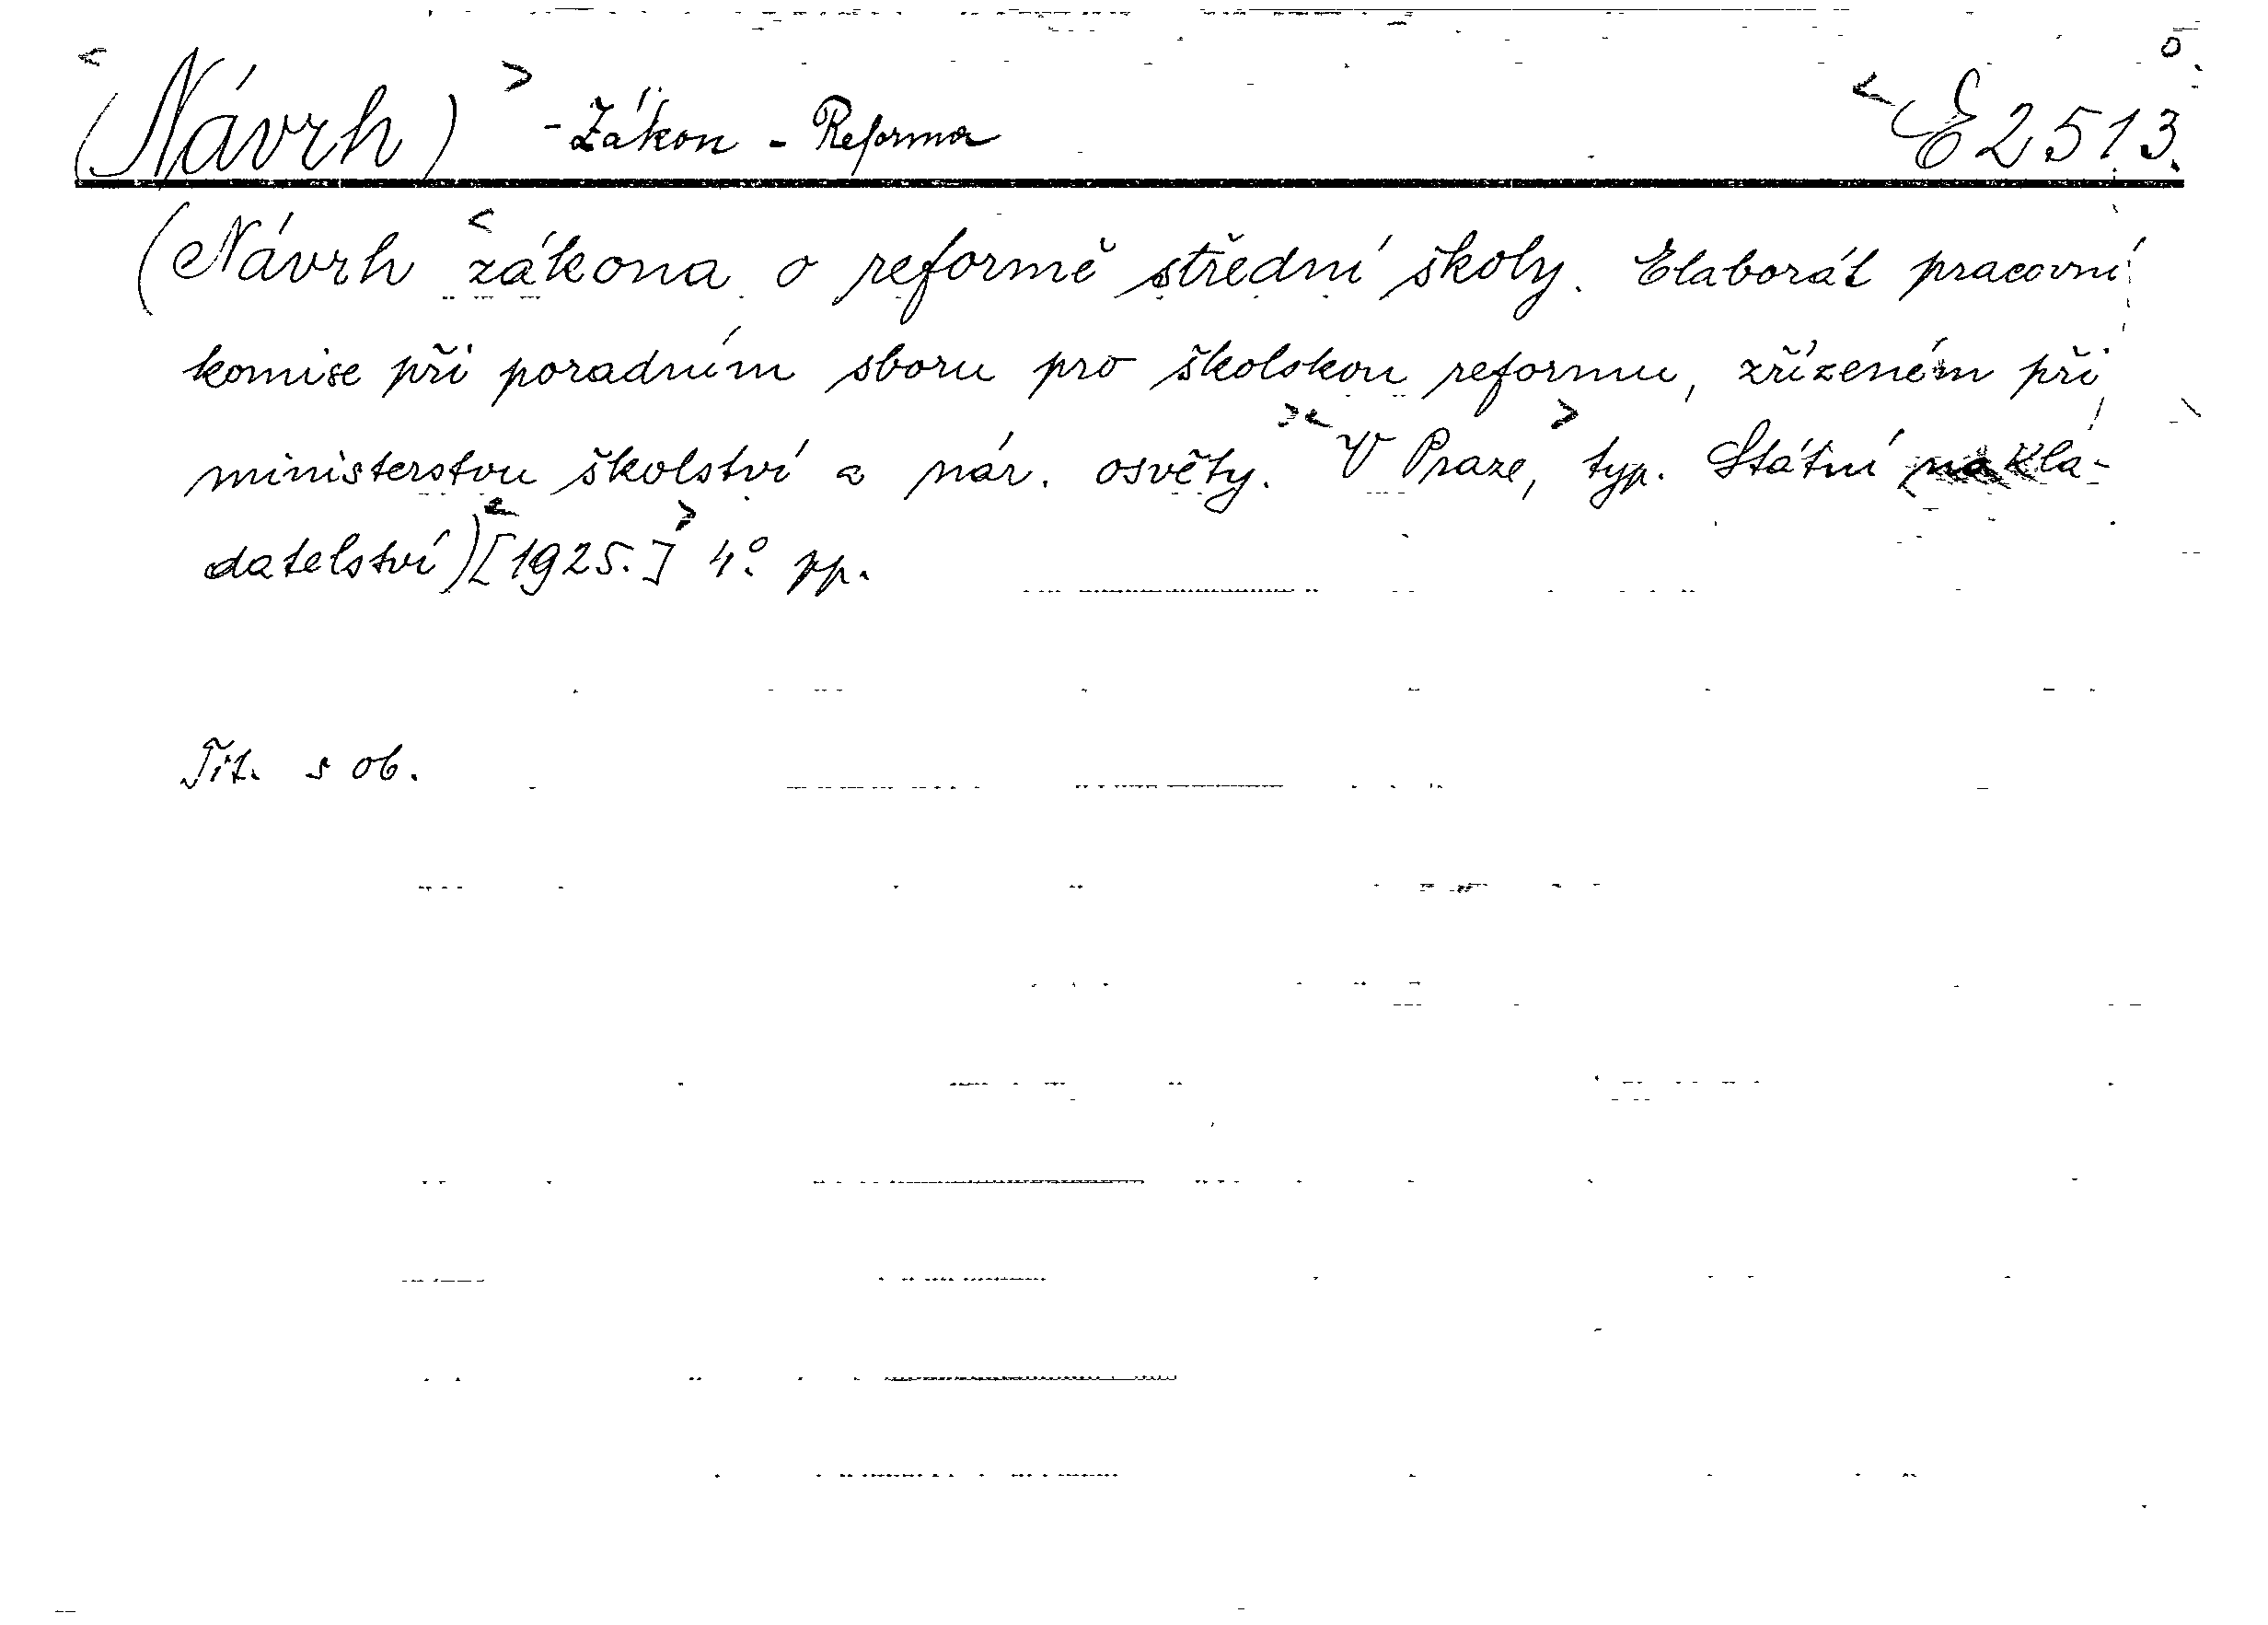 (Návrh) - Zákon - Reforma E 2513.
(Návrh zákona o reformě střední školy. Elaborát pracovní
komise při poradním sboru pro školskou reformu, zřízeném při
ministerstvu školství a nár. osvěty. V Praze, typ. Státní naklá-
datelství) [1925.] 4° pp.
Tit. s ob.